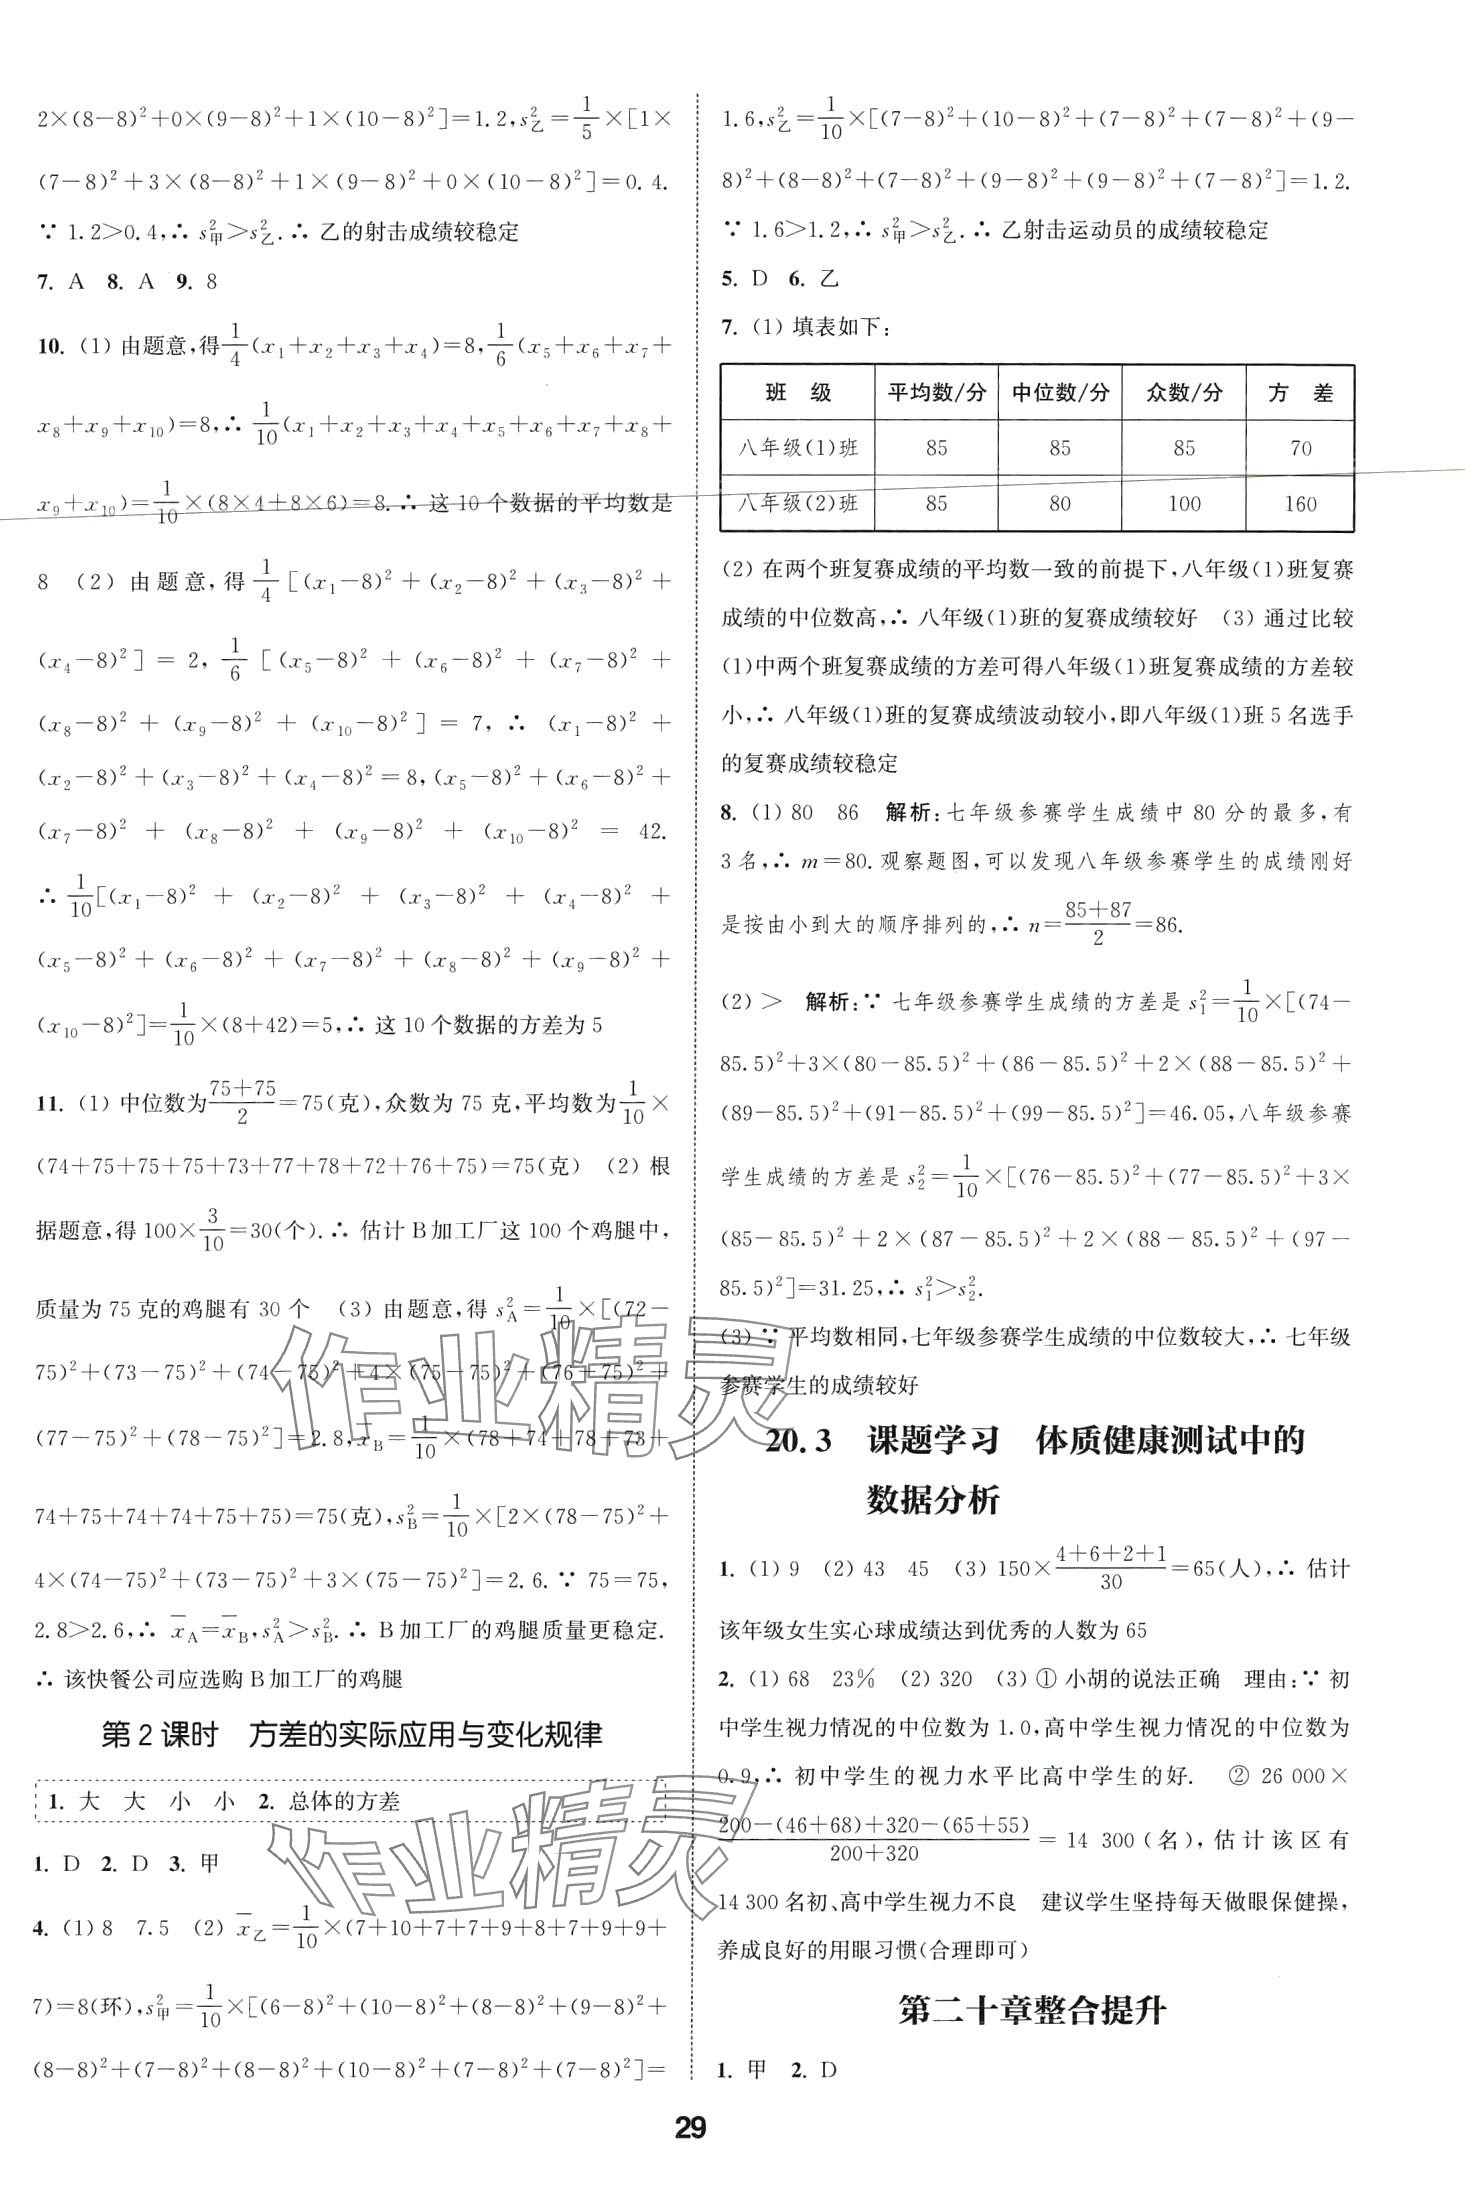 2×(8−8)²+0×(9−8)²+1×(10−8)²]=1.2,s²乙=1/5×[1×
(7−8)²+3×(8−8)²+1×(9−8)²+0×(10−8)²]=0.4.
∵ 1.2>0.4,∴ s²甲>s²乙.∴ 乙的射击成绩较稳定
7. A 8. A 9. 8
10. (1) 由题意,得1/4(x₁+x₂+x₃+x₄)=8,1/6(x₅+x₆+x₇+
x₈+x₉+x₁₀)=8,∴ 1/10(x₁+x₂+x₃+x₄+x₅+x₆+x₇+x₈+
x₉+x₁₀)=1/10×(8×4+8×6)=8.∴ 这 10 个数据的平均数是
8 (2) 由题意,得1/4[(x₁−8)²+(x₂−8)²+(x₃−8)²+
(x₄−8)²]=2,1/6[(x₅−8)²+(x₆−8)²+(x₇−8)²+
(x₈−8)²+(x₉−8)²+(x₁₀−8)²]=7,∴ (x₁−8)²+
(x₂−8)²+(x₃−8)²+(x₄−8)²=8,(x₅−8)²+(x₆−8)²+
(x₇−8)²+(x₈−8)²+(x₉−8)²+(x₁₀−8)²=42.
∴ 1/10[(x₁−8)²+(x₂−8)²+(x₃−8)²+(x₄−8)²+
(x₅−8)²+(x₆−8)²+(x₇−8)²+(x₈−8)²+(x₉−8)²+
(x₁₀−8)²]=1/10×(8+42)=5,∴ 这 10 个数据的方差为 5
11. (1) 中位数为(75+75)/2=75(克),众数为 75 克,平均数为1/10×
(74+75+75+75+73+77+78+72+76+75)=75(克) (2) 根
据题意,得 100×3/10=30(个).∴ 估计 B 加工厂这 100 个鸡腿中,
质量为 75 克的鸡腿有 30 个 (3) 由题意,得 s²A=1/10×[(72−
75)²+(73−75)²+(74−75)²+4×(75−75)²+(76−75)²+
(77−75)²+(78−75)²]=2.8,x̄B=1/10×(78+74+78+73+
74+75+74+74+75+75)=75(克),s²B=1/10×[2×(78−75)²+
4×(74−75)²+(73−75)²+3×(75−75)²]=2.6.∵ 75=75,
2.8>2.6,∴ x̄A=x̄B,s²A>s²B.∴ B 加工厂的鸡腿质量更稳定.
∴ 该快餐公司应选购 B 加工厂的鸡腿
第 2 课时 方差的实际应用与变化规律
1. 大 大 小 小 2. 总体的方差
1. D 2. D 3. 甲
4. (1) 8 7.5 (2) x̄乙=1/10×(7+10+7+7+9+8+7+9+9+
7)=8(环),s²甲=1/10×[(6−8)²+(10−8)²+(8−8)²+(9−8)²+
(8−8)²+(7−8)²+(8−8)²+(10−8)²+(7−8)²+(7−8)²]=
1.6,s²乙=1/10×[(7−8)²+(10−8)²+(7−8)²+(7−8)²+(9−
8)²+(8−8)²+(7−8)²+(9−8)²+(9−8)²+(7−8)²]=1.2.
∵ 1.6>1.2,∴ s²甲>s²乙.∴ 乙射击运动员的成绩较稳定
5. D 6. 乙
7. (1) 填表如下:
班 级 平均数/分 中位数/分 众数/分 方 差
八年级(1)班 85 85 85 70
八年级(2)班 85 80 100 160
(2) 在两个班复赛成绩的平均数一致的前提下,八年级(1)班复赛
成绩的中位数高,∴ 八年级(1)班的复赛成绩较好 (3) 通过比较
(1)中两个班复赛成绩的方差可得八年级(1)班复赛成绩的方差较
小,∴ 八年级(1)班的复赛成绩波动较小,即八年级(1)班 5 名选手
的复赛成绩较稳定
8. (1) 80 86 解析:七年级参赛学生成绩中 80 分的最多,有
3 名,∴ m=80.观察题图,可以发现八年级参赛学生的成绩刚好
是按由小到大的顺序排列的,∴ n=(85+87)/2=86.
(2) > 解析:∵ 七年级参赛学生成绩的方差是 s²₁=1/10×[(74−
85.5)²+3×(80−85.5)²+(86−85.5)²+2×(88−85.5)²+
(89−85.5)²+(91−85.5)²+(99−85.5)²]=46.05,八年级参赛
学生成绩的方差是 s²₂=1/10×[(76−85.5)²+(77−85.5)²+3×
(85−85.5)²+2×(87−85.5)²+2×(88−85.5)²+(97−
85.5)²]=31.25,∴ s²₁>s²₂.
(3) ∵ 平均数相同,七年级参赛学生成绩的中位数较大,∴ 七年级
参赛学生的成绩较好
20.3 课题学习 体质健康测试中的
数据分析
1. (1) 9 (2) 43 45 (3) 150×(4+6+2+1)/30=65(人),∴ 估计
该年级女生实心球成绩达到优秀的人数为 65
2. (1) 68 23% (2) 320 (3) ① 小胡的说法正确 理由:∵ 初
中学生视力情况的中位数为 1.0,高中学生视力情况的中位数为
0.9,∴ 初中学生的视力水平比高中学生的好. ② 26 000×
[200−(46+68)+320−(65+55)]/(200+320)=14 300(名),估计该区有
14 300 名初、高中学生视力不良 建议学生坚持每天做眼保健操,
养成良好的用眼习惯(合理即可)
第二十章整合提升
1. 甲 2. D
29
作业精灵
作业精灵